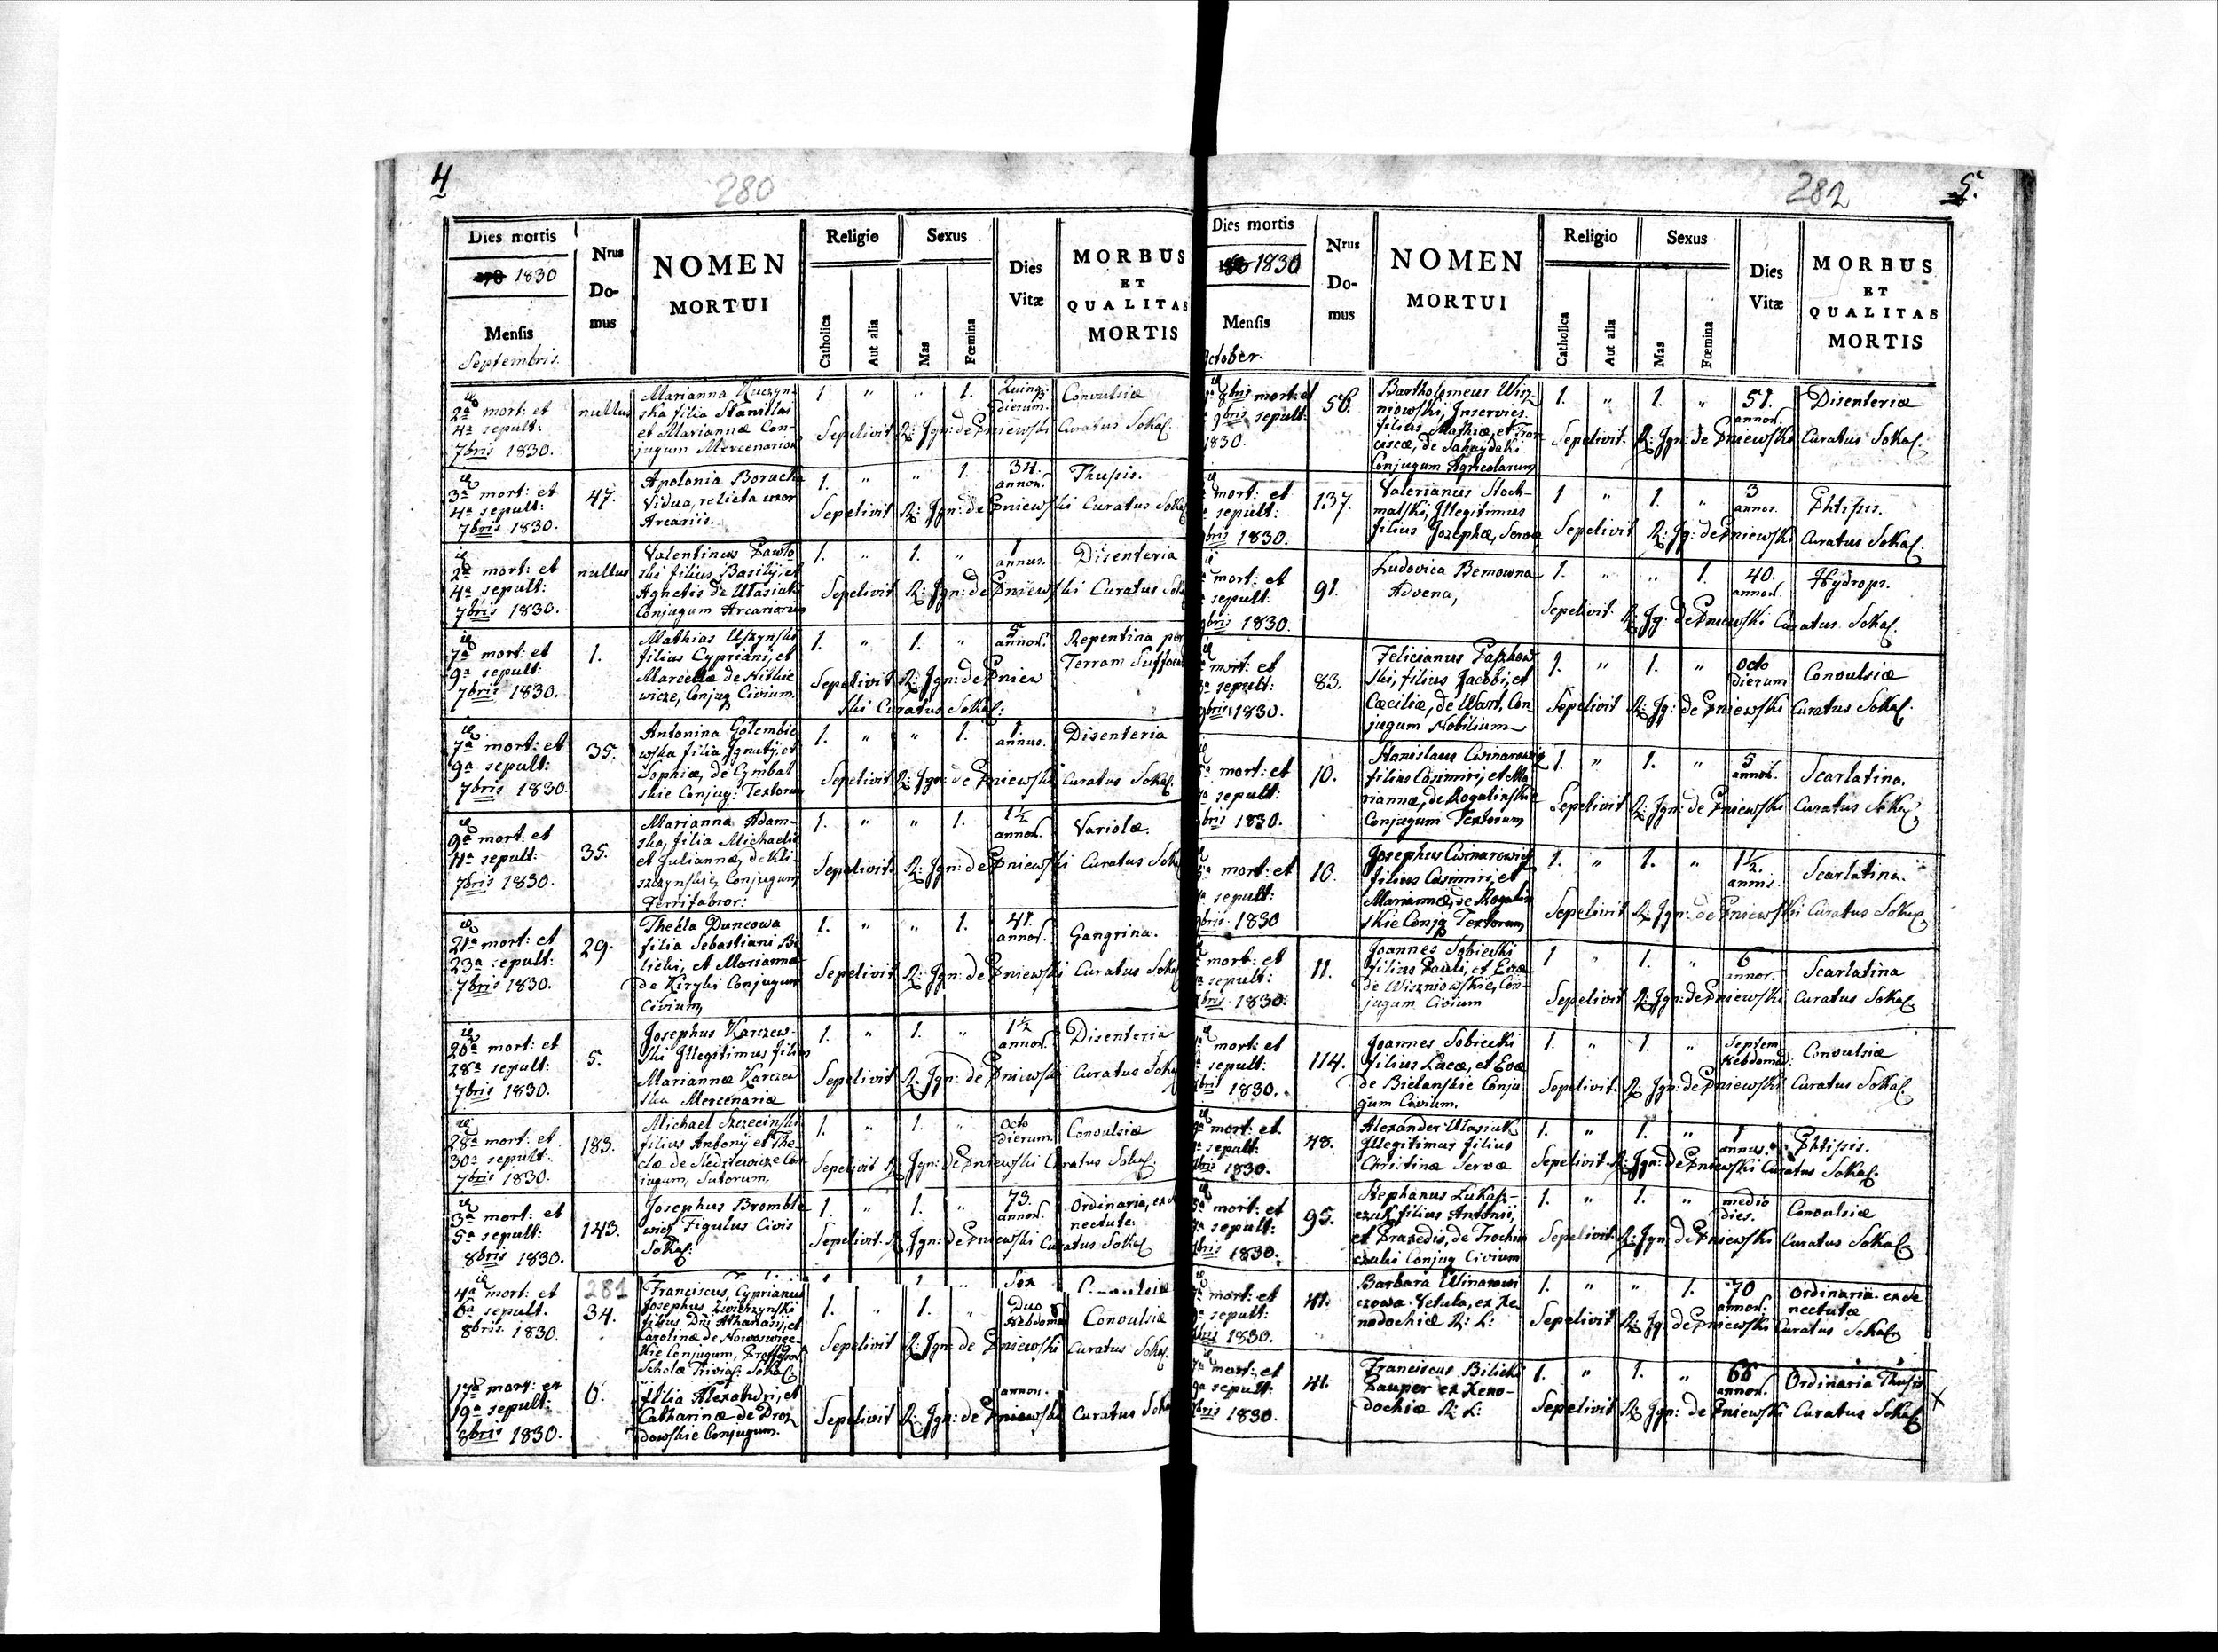 4
280
Dies mortis
1830
Mensis
Septembris.
Nrus
Do-
mus
NOMEN
MORTUI
Religio
Catholica
Aut alia
Sexus
Mas
Fœmina
Dies
Vitæ
MORBUS
ET
QUALITAS
MORTIS
2a mort: et
4a sepult:
7bris 1830.
nullus
Marianna Kuczyn-
ska filia Stanislai
et Mariannæ Con-
jugum Mercenarior
1. " " 1.
dierum.
Convulsiæ
Sepelivit R: Ign: de Pniewski Curatus Sokal.
3a mort: et
4a sepult:
7bris 1830.
47.
Apolonia
Vidua, relicta uxor
Arcarii.
1. " " 1.
34.
annor.
Thysis.
Sepelivit R: Ign: de Pniewski Curatus
2a mort: et
4a sepult:
7bris 1830.
nullus
Valentinus Pawlo
ski filius Basilij, et
Agnetis de Wasiuki
Conjugum Arcariorum
1. " 1. "
1
annus.
Disenteria
Sepelivit R: Ign: de Pniewski Curatus
7a mort: et
9a sepult:
7bris 1830.
1.
Mathias Uszynski
filius Cypriani, et
Marcellæ de
wicze, Conjug Civium.
1. " 1. "
5
annor.
Repentina per
Terram
Sepelivit R: Ign: de Pniew
ski Curatus Sokal:
7a mort: et
9a sepult:
7bris 1830.
35.
Antonina Golembio
wska filia Ignatij, et
Sophiæ, de Cymbal
skie Conjug: Textorum
1. " " 1.
1
annus.
Disenteria
Sepelivit R: Ign: de Pniewski Curatus Sokal.
9a mort: et
11a sepult:
7bris 1830.
35.
Marianna Adam-
ska, filia Michaelis
et Juliannæ, de Kli-
szczynskie, Conjugum
Ferrifabror:
1. " " 1.
1½
annor.
Variolæ.
Sepelivit R: Ign: de Pniewski Curatus
21a mort: et
23a sepult:
7bris 1830.
29.
Thecla Duncowa
filia Sebastiani Bi
licki, et Mariannæ
de Kiryki Conjugum
Civium,
1. " " 1.
41.
annor.
Gangrina.
Sepelivit R: Ign: de Pniewski Curatus
26a mort: et
28a sepult:
7bris 1830.
5.
Josephus Karczew-
ski Illegitimus filius
Mariannæ Karczew
ska Mercenariæ
1. " 1. "
1½
annor.
Disenteria
Sepelivit R: Ign: de Pniewski Curatus
28a mort: et
30a sepult:
7bris 1830.
183.
Michael Szczecinski
filius Antonij et The-
clæ de Siedziewicze Con
jugum, Sutorum,
1. " 1. "
octo
dierum.
Convulsiæ
Sepelivit R: Ign: de Pniewski Curatus Sokal.
3a mort: et
5a sepult:
8bris 1830.
143.
Josephus Bromble
wicz Figulus Civis
Sokal:
1. " 1. "
73.
annor.
Ordinaria, ex
nectute:
Sepelivit R: Ign: de Pniewski Curatus Sokal
4a mort: et
6a sepult.
8bris. 1830.
281
34.
Franciscus, Cyprianus
Josephus, Zwierzynski
filius Dni Athanasij, et
Carolinæ de
skie Conjugum, Professor
Scholæ Trivial: Sokal
1. " 1. "
Duo
Hebdoma
Convulsiæ
Sepelivit R: Ign: de Pniewski Curatus Sokal.
17a mort: et
19a sepult:
8bris 1830.
6.
filia Alexandri, et
Catharinæ de Droz
dowskie Conjugum.
annor.
Sepelivit R: Ign: de Pniewski Curatus
282
5.
Dies mortis
1830
Mensis
October
Nrus
Do-
mus
NOMEN
MORTUI
Religio
Catholica
Aut alia
Sexus
Mas
Fœmina
Dies
Vitæ
MORBUS
ET
QUALITAS
MORTIS
8bris mort: et
9bris sepult:
1830.
56.
Bartholomeus Wisz
niowski, Inservies.
filius Mathiæ, et Fran
ciscæ, de Sahaydaki
Conjugum Agricolarum
1. " 1. "
51.
annor.
Disenteria
Sepelivit. R: Ign: de Pniewski Curatus Sokal.
mort: et
sepult:
bris 1830.
137.
Valerianus Stoch-
malski, Illegitimus
filius Josephæ, Servæ
1 " 1. "
3
annor.
Phtisis.
Sepelivit R: Ig: de Pniewski Curatus Sokal.
mort: et
sepult:
bris 1830.
91.
Ludovica Bemowna
Advena,
1. " " 1.
40.
annor.
Hydrops.
Sepelivit. R: Ig: de Pniewski Curatus Sokal.
mort: et
sepult:
bris 1830.
83.
Felicianus Paszkow
ski, filius Jacobi, et
Cæciliæ, de Wart, Con
jugum Nobilium
1. " 1. "
octo
dierum
Convulsiæ
Sepelivit R: Ig: de Pniewski Curatus Sokal.
mort: et
sepult:
bris 1830.
10.
Stanislaus Cwinarowicz
filius Casimiri, et Ma
riannæ, de Rogalinskie
Conjugum Textorum
1. " 1. "
5
annor.
Scarlatina.
Sepelivit R: Ign: de Pniewski Curatus Sokal
mort: et
sepult:
bris. 1830
10.
Josephus Cwinarowicz
filius Casimiri, et
Mariannæ, de Rogalin
skie Conjg Textorum
1. " 1. "
1½.
annis.
Scarlatina.
Sepelivit R: Ign: de Pniewski Curatus Sokal
mort: et
sepult:
bris. 1830.
11.
Joannes Sobiecki
filius Pauli, et Evæ
de Wiszniowskie, Con-
jugum Civium
1 " 1. "
6
annor.
Scarlatina
Sepelivit R: Ign: de Pniewski Curatus Sokal
mort: et
sepult:
bris 1830.
114.
Joannes Sobiecki
filius Lucæ, et Evæ
de Bielanskie Conju
gum Civium.
1. " 1. "
Septem
Hebdomad
Convulsiæ
Sepelivit. R: Ign: de Pniewski Curatus Sokal.
mort: et
sepult:
bris 1830.
48.
Alexander Wasiuk
Illegitimus filius
Christinæ Servæ
1. " 1. "
1
annus.
Phtisis.
Sepelivit R: Ign: de Pniewski Curatus Sokal.
mort: et
sepult:
bris 1830.
95.
Stephanus Lukasz-
czuk filius Antonii,
et Praxedis, de Trochim
czuki Conjug Civium
1. " 1. "
medio
dies.
Convulsiæ
Sepelivit R: Ign: de Pniewski Curatus Sokal
mort: et
sepult:
bris 1830.
41.
Barbara Winarowi
czowa. Vetula, ex Xe
nodochiæ R: L:
1. " " 1.
70
annor:
Ordinaria ex Se
nectutæ
Sepelivit R: Ig: de Pniewski Curatus Sokal
mort: et
sepult:
bris 1830.
41.
Franciscus Bilicki
Pauper ex Xeno-
dochiæ R: L:
1. " 1. "
66
annor.
Ordinaria Thysis
Sepelivit R: Ign: de Pniewski Curatus Sokal